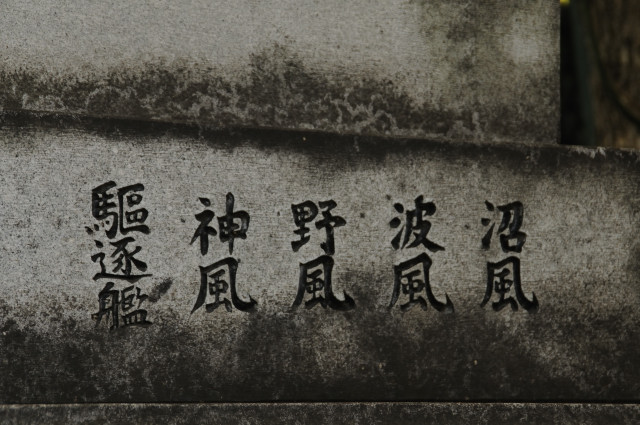 驅逐艦
神風
野風
波風
沼風